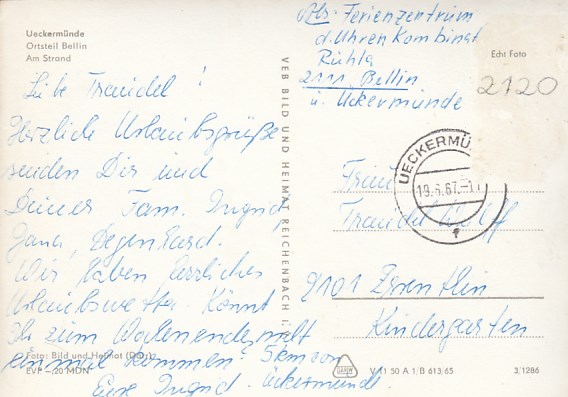 Ueckermünde
Ortsteil Bellin
Am Strand
Abs. Ferienzentrum
d. Uhren Kombinat
Ruhla
2111 Bellin
ü. Uckermünde
Echt Foto
2120
Liebe Traudel!
Herzliche Urlaubsgrüße
senden Dir und
Deiner Fam. Ingrid,
Degenhard.
Wir haben herrliches
Urlaubswetter. Könnt
Ihr zum Wochenende mal
einmal kommen? 5km von
Eure Ingrid. Uckermünde.
VEB BILD UND HEIMAT REICHENBACH I.
UECKERMÜ
19.6.67.-11
Traudel Wolff
2101
Kindergarten
Foto: Bild und Heimat
EVP -,20 MDN
V 11 50 A 1/B 613/65
3/1286